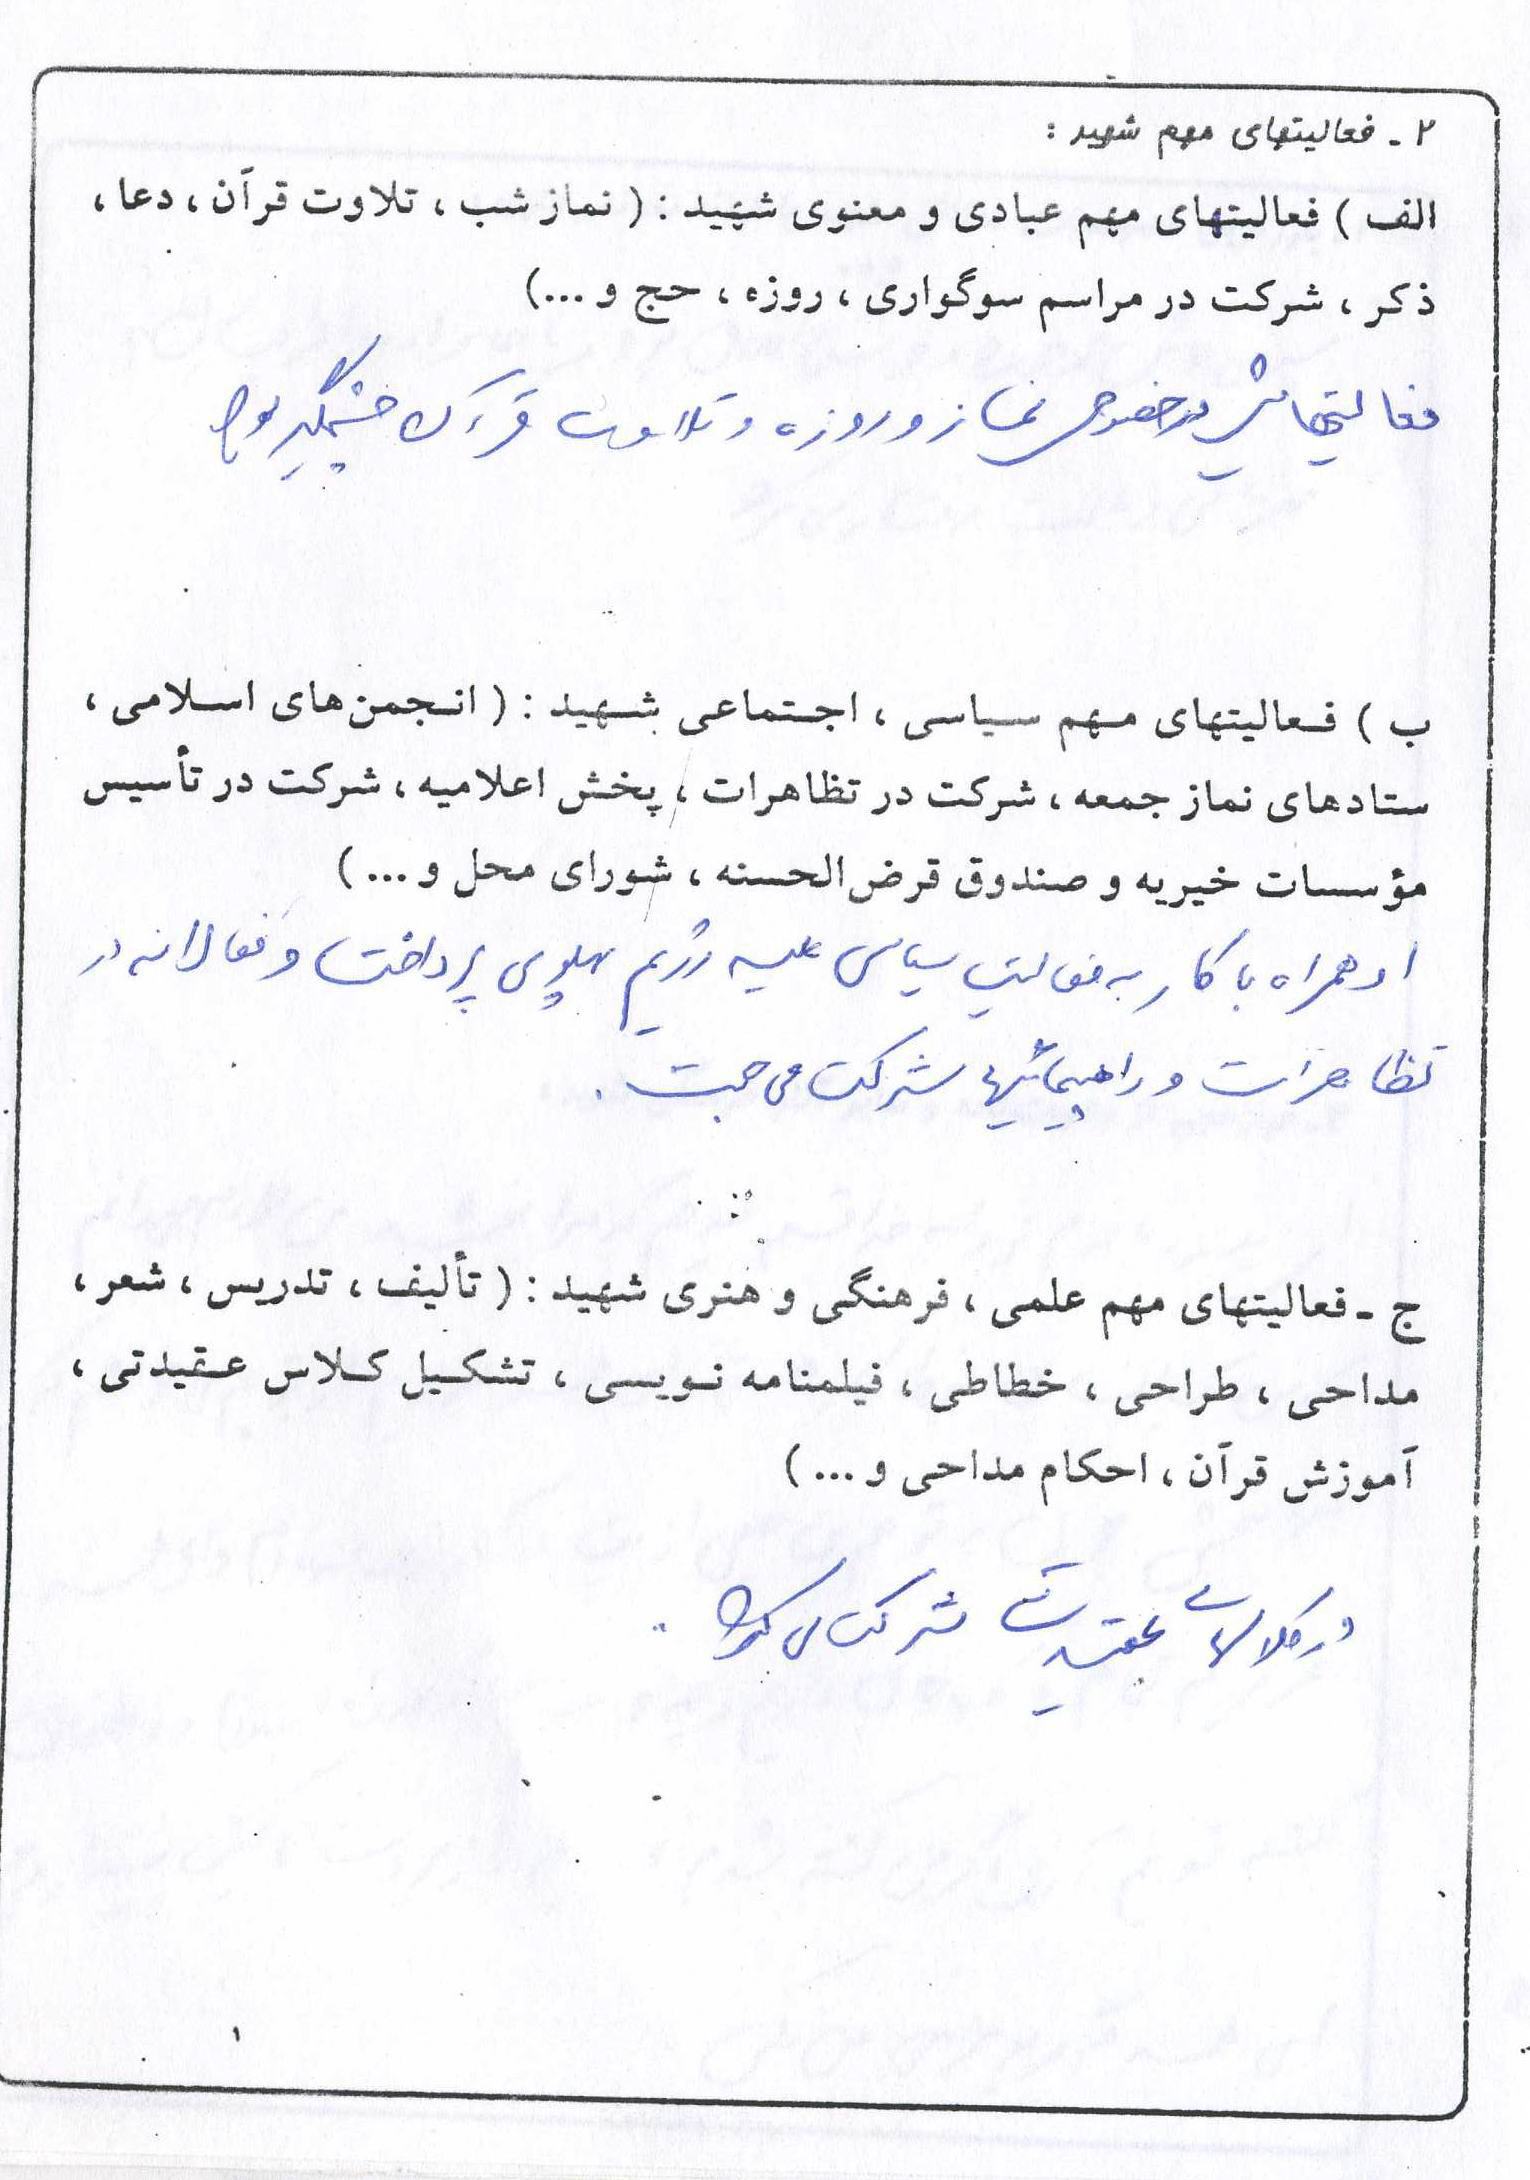 ۲ - فعالیتهای مهم شهید :
الف ) فعالیتهای مهم عبادی و معنوی شهید : ( نماز شب ، تلاوت قرآن ، دعا ،
ذکر ، شرکت در مراسم سوگواری ، روزه ، حج و ...)
فعالیتهایش در خصوص نماز و روزه و تلاوت قرآن چشمگیر بود
ب ) فعالیتهای مهم سیاسی ، اجتماعی شهید : ( انجمن‌های اسلامی ،
ستادهای نماز جمعه ، شرکت در تظاهرات ، پخش اعلامیه ، شرکت در تأسیس
مؤسسات خیریه و صندوق قرض‌الحسنه ، شورای محل و ... )
او همراه با کار به فعالیت سیاسی علیه رژیم پهلوی پرداخت و فعالانه در
تظاهرات و راهپیمائیها شرکت می جست .
ج - فعالیتهای مهم علمی ، فرهنگی و هنری شهید : ( تألیف ، تدریس ، شعر ،
مداحی ، طراحی ، خطاطی ، فیلمنامه نویسی ، تشکیل کلاس عقیدتی ،
آموزش قرآن ، احکام مداحی و ... )
در کلاسهای عقیدتی شرکت می کرد .
۱